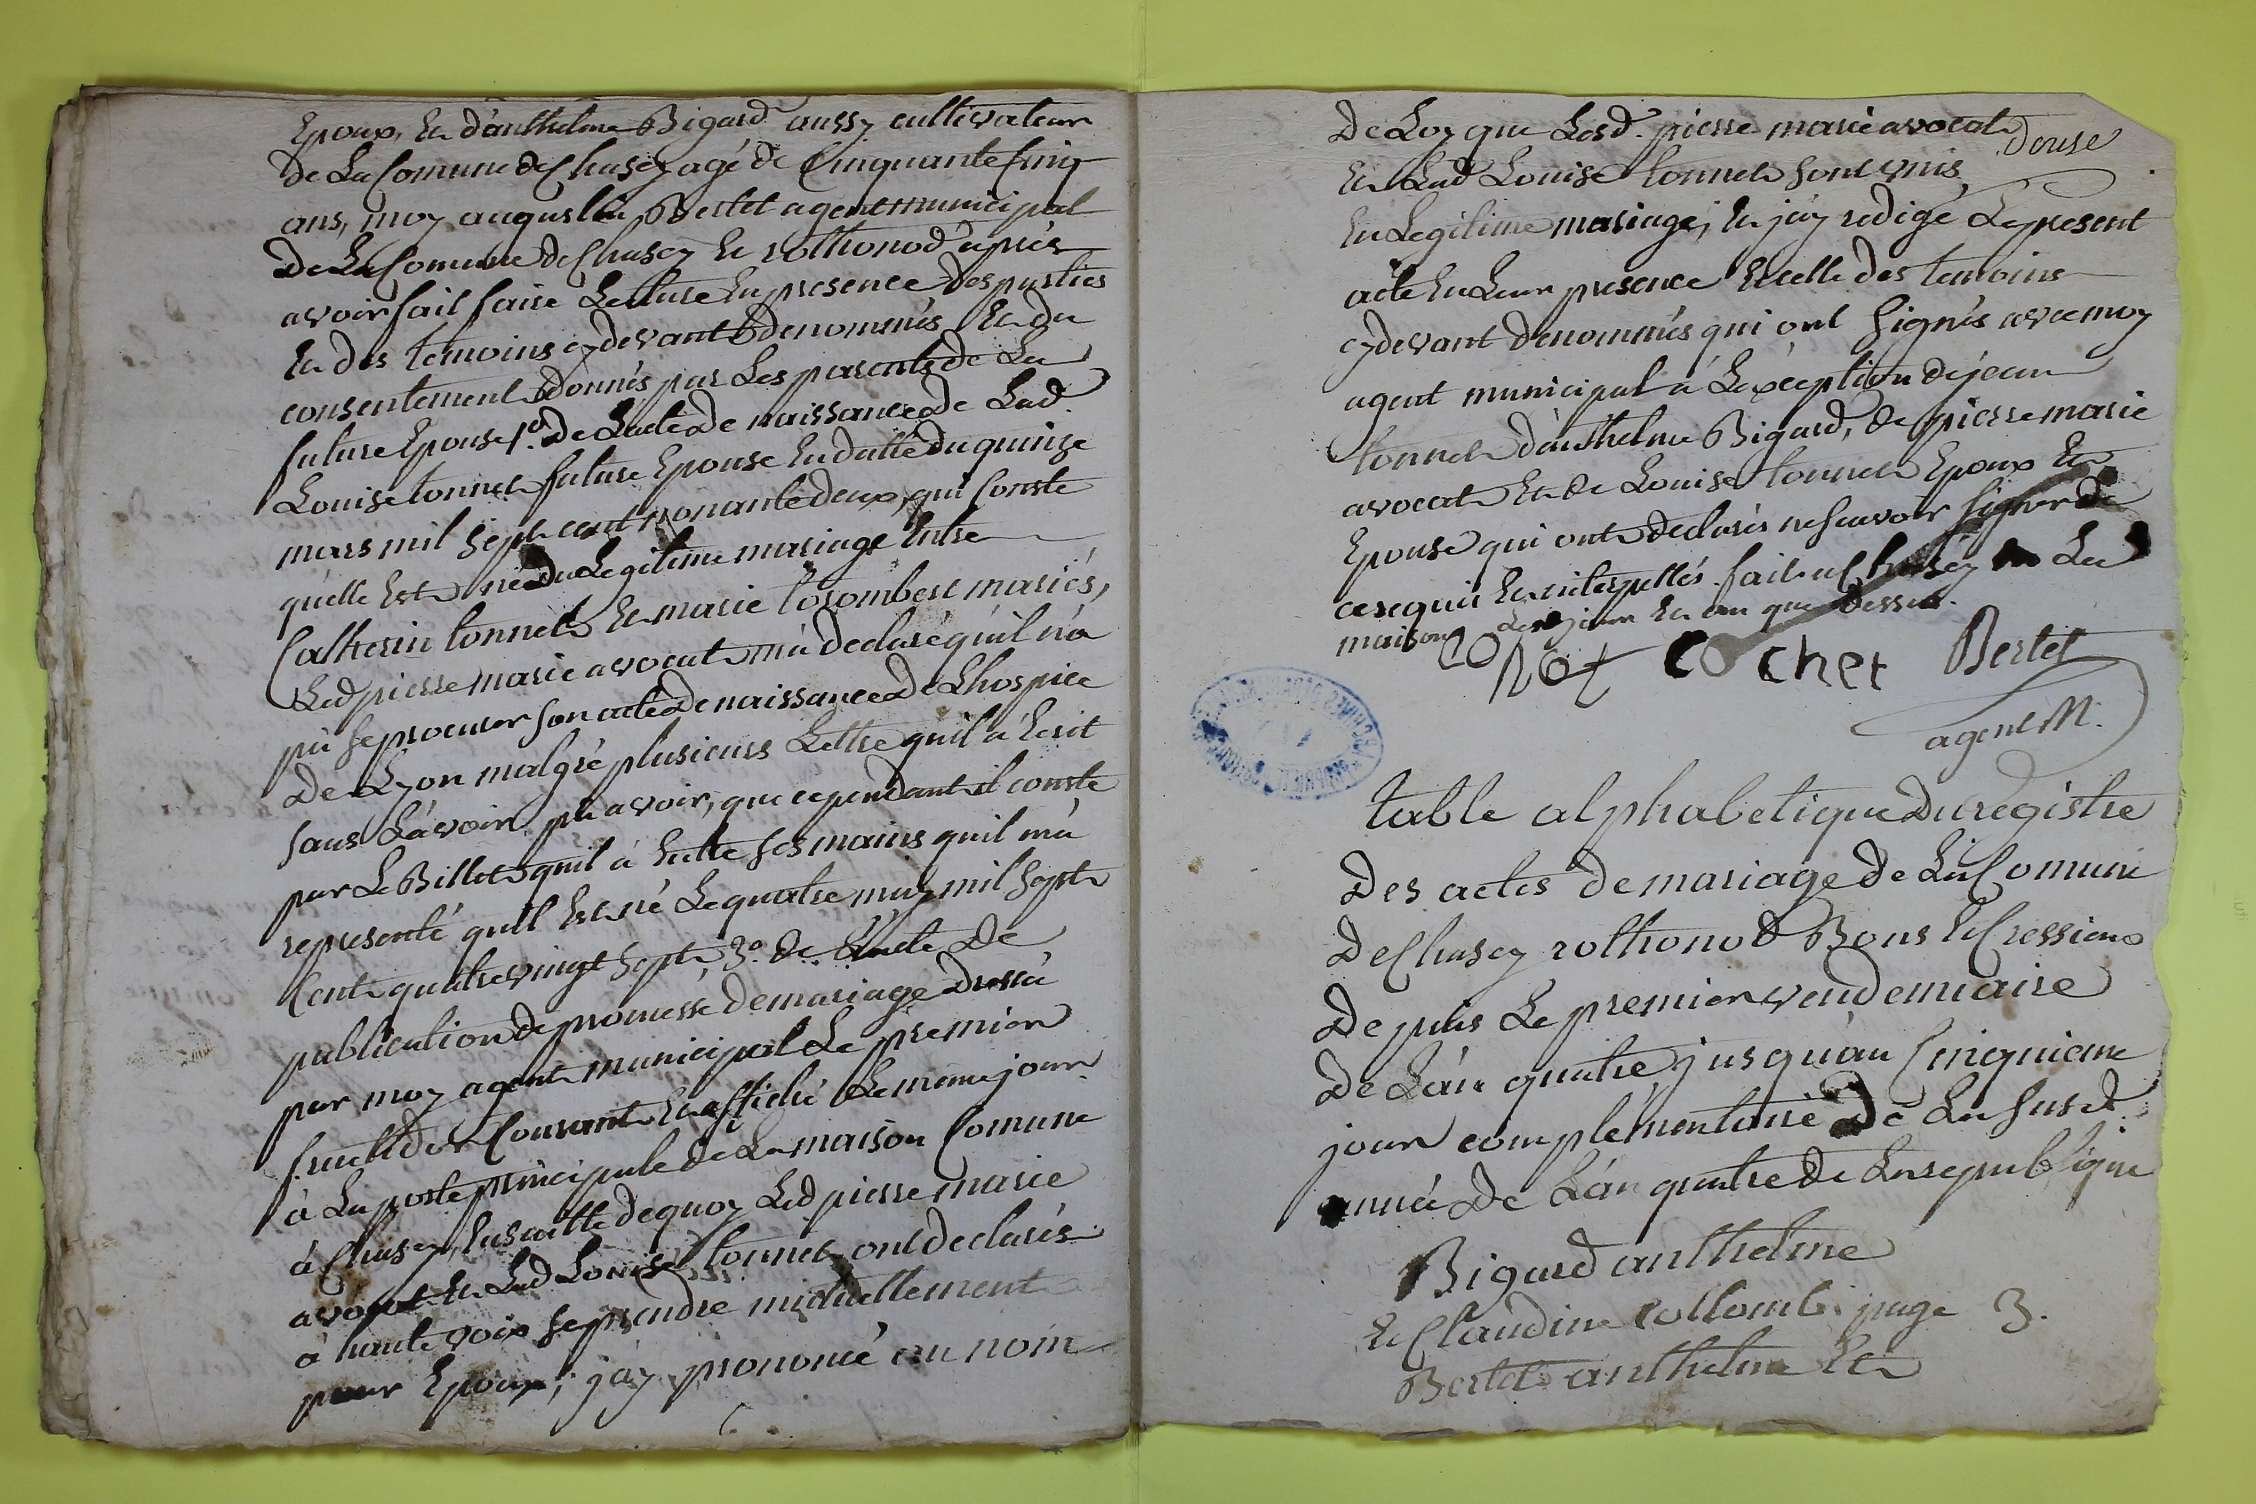 Epoux, Et d'anthelme Bigard aussy cultivateur
de La Comune de Chasey agé de Cinquante Cinq
ans, moy augustin Bertet agent municipal
De La Comune de Chasey Et rothonod d'après
avoir fait faire Lecture En presence des parties
Et des temoins cydevant denommés Et du
consentement donnés par Les parents de La
future Epouse 1º. de Lacte de naissance de Lad.
Louise tonnet future Epouse En datte du quinze
mars mil Sept cent nonante deux, qui Conste
qu'elle Est née du Legitime mariage Entre
Catherin tonnet Et marie Colombert mariés,
Led pierre marie avocat m'a declaré qu'il n'a
pû Se procurer son acte de naissance de Lhospice
De Lyon malgré plusieurs Lettre quil a Ecrit
sans L'avoir pû avoir, que cependant il conste
par Le Billet quil a Entre ses mains quil m'a
representé quil Est né Le quatre may mil Sept
Cent quatre vingt Sept 3º. de Lacte De
publication de promesse de mariage dressé
par moy agent municipal Le premier
fructidor Courant Et affiché Le meme jour
à La porte principale de La maison Comune
à Chasey, Ensuitte de quoy Led pierre marie
avocat Et Lad Louise tonnet ont declarés
à haute voix Se prendre mutuellement
pour Epoux; j'ay prononcé au nom
De Loy que Lesd. pierre marie avocat
Douse
Et Lad Louise tonnet sont unis
En Legitime mariage, Et j'ay redigé Le present
acte En Leur presence Et celle des temoins
cydevant denommés qui ont Signés avec moy
agent municipal à L'exception de jean
tonnet d'anthelme Bigard, de pierre marie
avocat Et de Louise tonnet Epoux Et
Epouse qui ont declarés ne Scavoir Signer de
ce requis Et interpellés. fait a Chasey En La
maison Les jour Et an que dessus.
Cochet Bertet
agent M.
table alphabetique du registre
Des actes de mariage de La Comune
De Chasey rothonod Bons Et Cressieux
Depuis Le premier vendemiaire
De L'an quatre jusqu'au Cinquieme
jour complementaire De La susd.
année De L'an quatre de La republique
Bigard anthelme
Et Claudine Collomb page 3.
Bertet anthelme Et